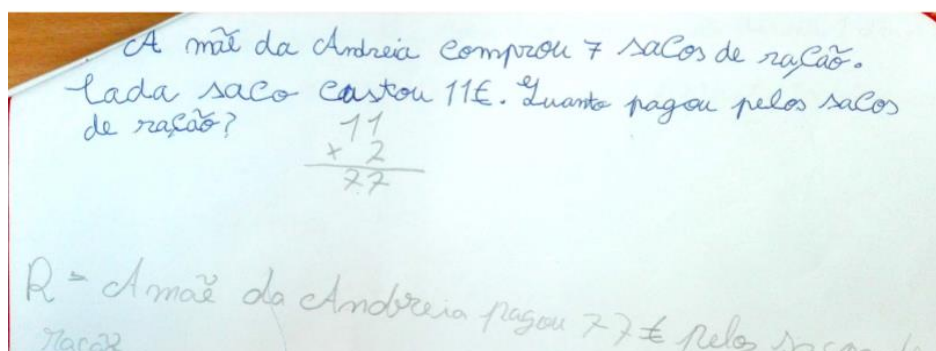 A mãe da Andreia comprou 7 sacos de ração.
Cada saco custou 11€. Quanto pagou pelos sacos
de ração?
11
x 2
77
R = A mãe da Andreia pagou 77€ pelos sacos de
ração